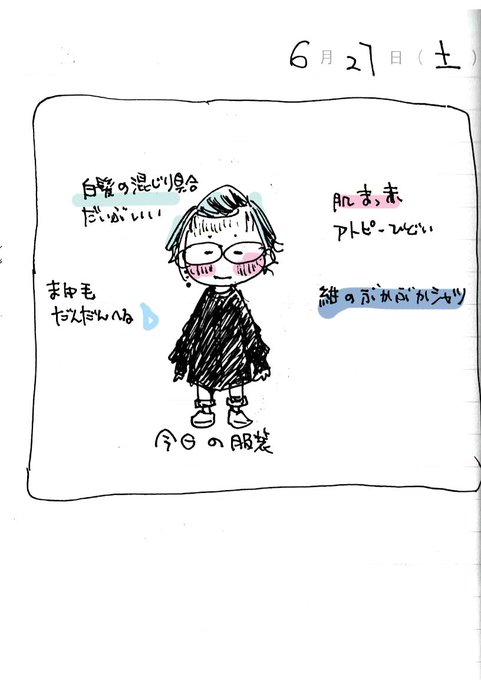 6月27日(土)
白髪の混じり具合
だいぶいい
肌まっ赤
アトピーひどい
まゆ毛
だんだんへる
のぶかぶかシャツ
今日の服装